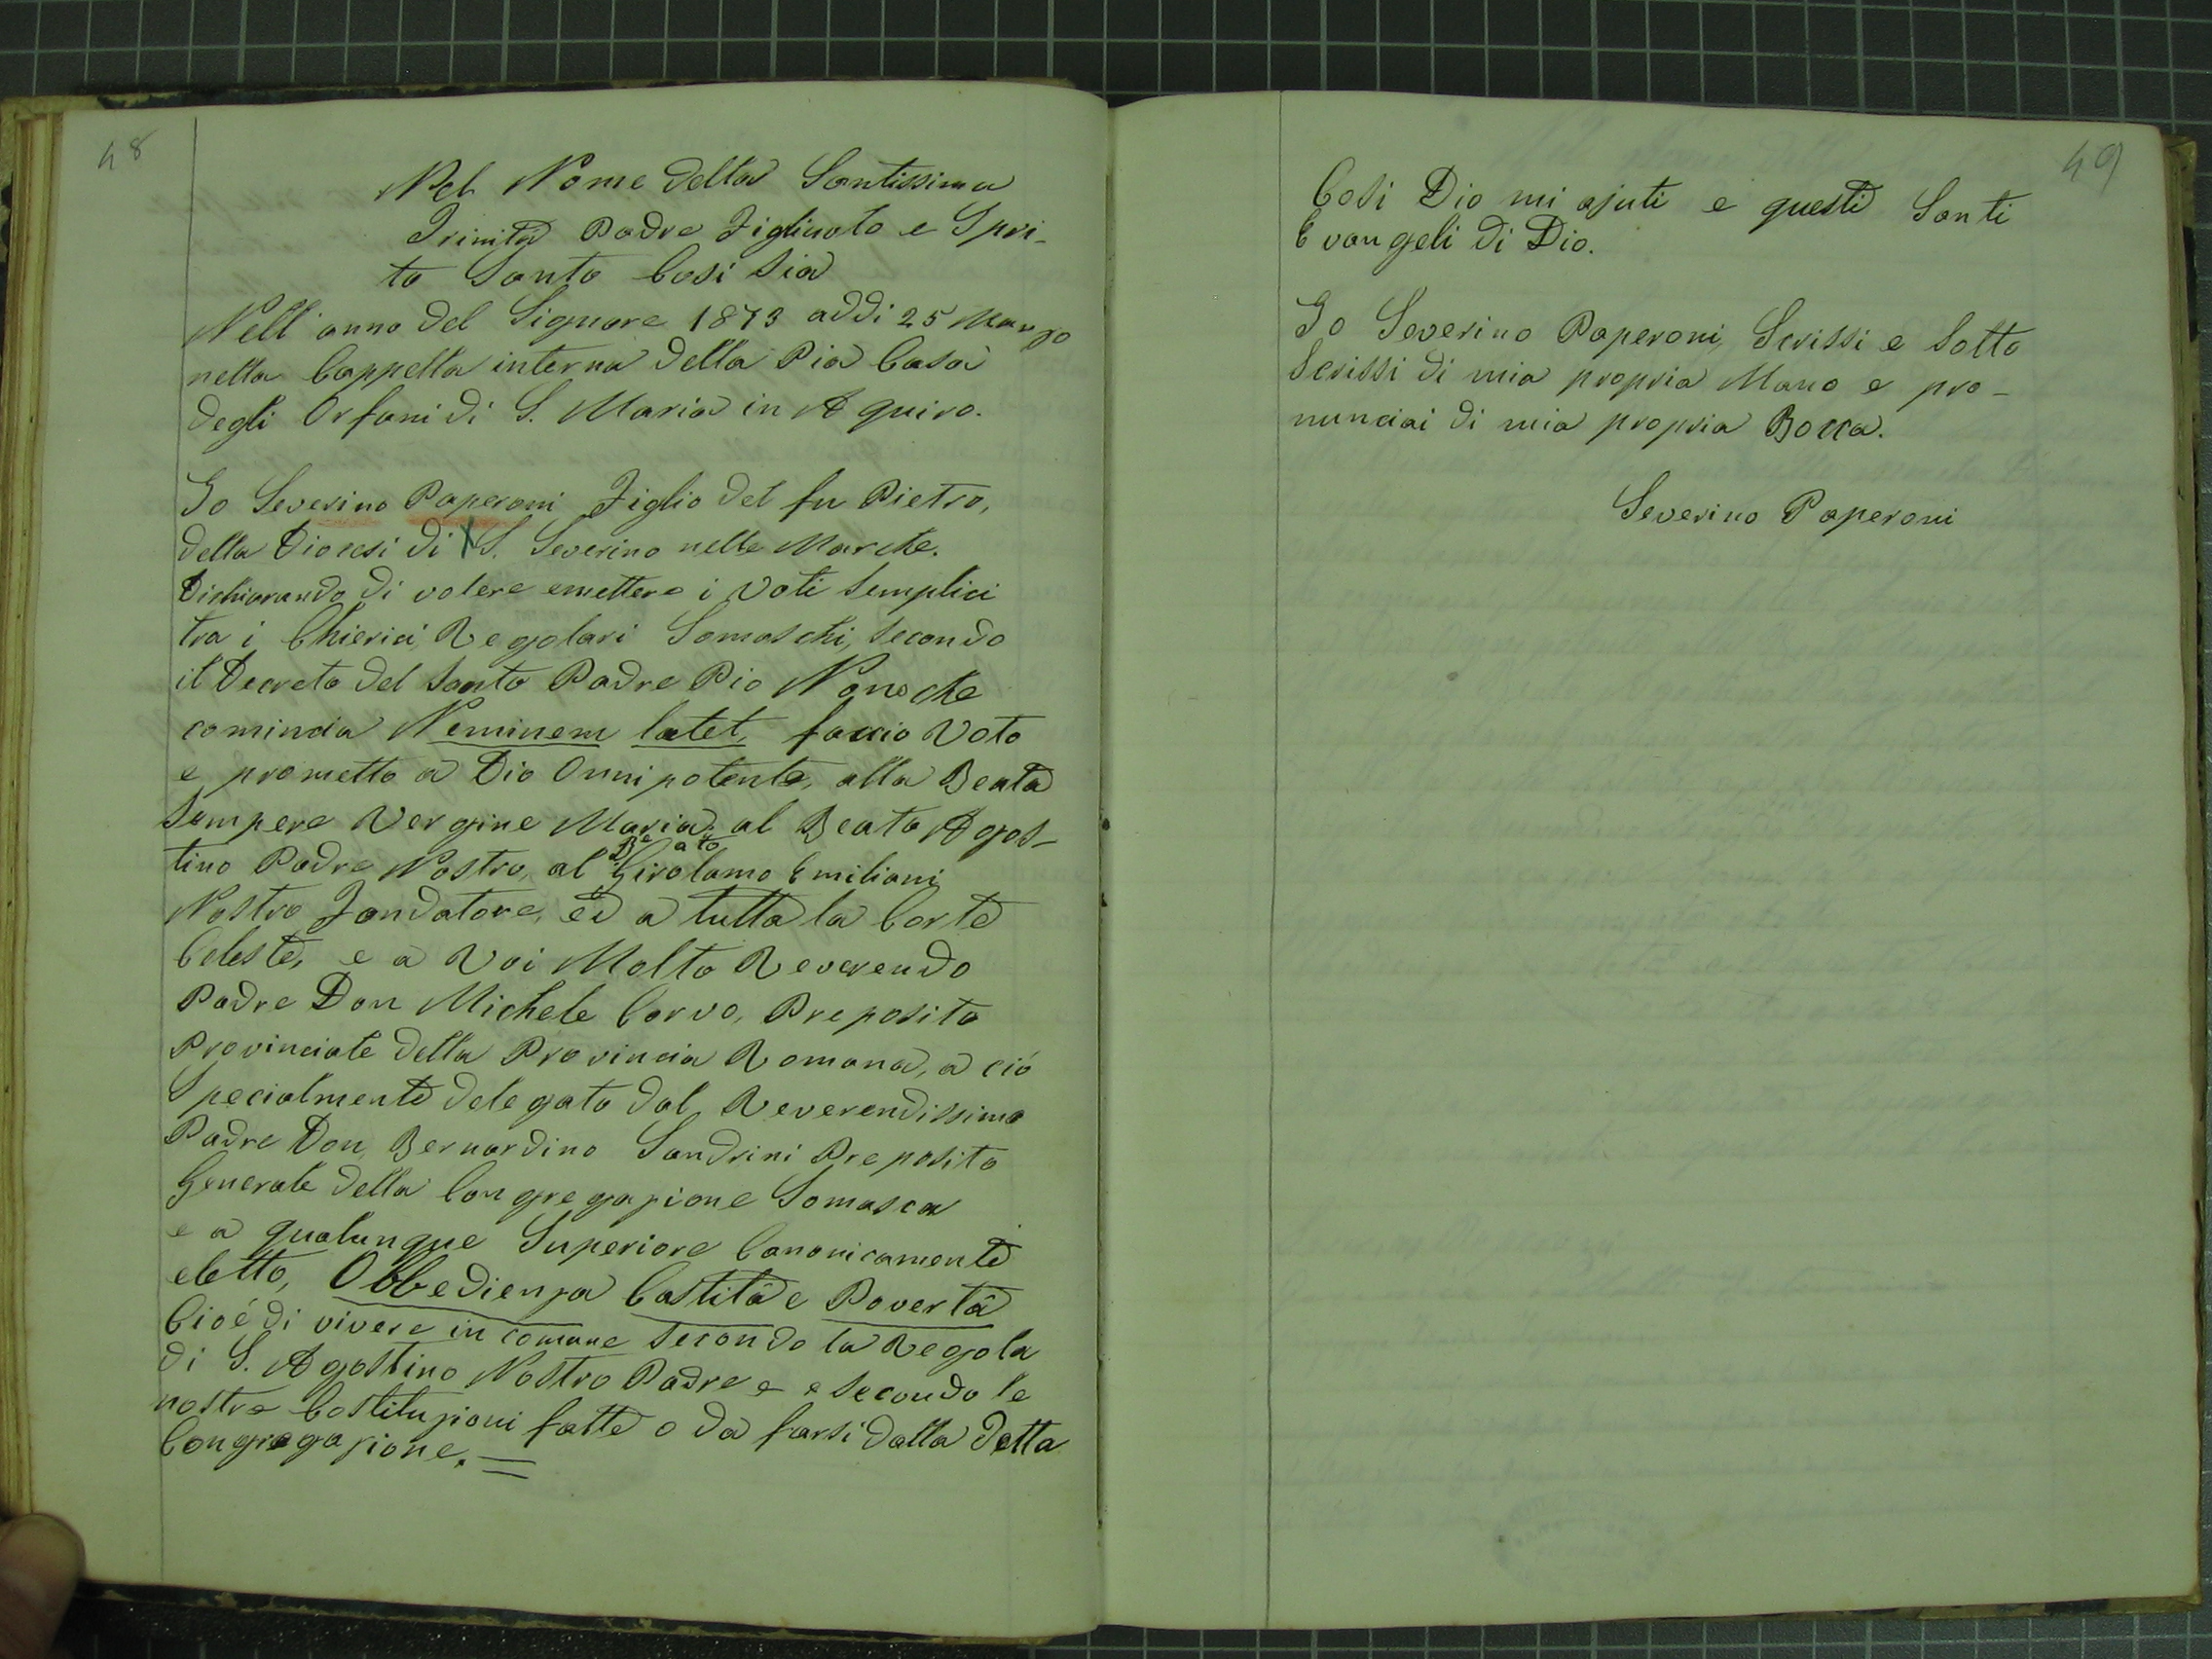 48
Nel Nome della Santissima
Trinità Padre Figliuolo e Spri-
to Santo Cosi sia
Nell' anno del Signore 1873 addi 25 Marzo
nella Cappella interna della Pia Casa
degli Orfani di S. Maria in Aquiro.
Io Severino Paperoni Figlio del fu Pietro,
della Diocesi di S. Severino nelle Marche.
Dichiarando di volere emettere i Voti Semplici
tra i Chierici Regolari Somaschi, Secondo
il Decreto del Santo Padre Pio Nono che
comincia Neminem latet, faccio Voto
e prometto a Dio Onnipotente, alla Beata
Sempere Vergine Maria, al Beato Agos-
tino Padre Nostro, al Beato Girolamo Emiliani
Nostro Fondatore, ed a tutta la Corte
Celeste, e a Voi Molto Reverendo
Padre Don Michele Corvo, Preposito
Provinciale della Provincia Romana, a ció
Specialmente delegato dal Reverendissimo
Padre Don Bernardino Sandrini Preposito
Generale della Congregazione Somasca
e a qualunque Superiore Canonicamente
eletto, Obbedienza Castità e Povertà
Cioé di vivere in comune Secondo la Regola
di S. Agostino Nostro Padre e e secondo le
nostre Costituzioni fatte o da farsi dalla detta
Congregazione. =
49
Cosi Dio mi ajuti e questi Santi
Evangeli di Dio.
Io Severino Paperoni, Scrissi e Sotto
Scrissi di mia propria Mano e pro-
nunciai di mia propria Bocca.
Severino Paperoni